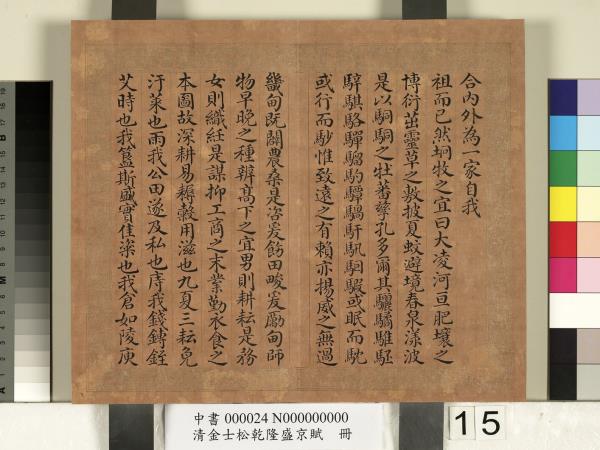 合內外為一家自我
祖而已然坰牧之宜曰大凌河亘肥壤之
博衍茁靈草之敷披夏蚊避境春泉漾波
是以駉駉之牡蕃孳孔多爾其驪驈騅駓
騂騏駱驒騮馰驔騧馯駰騢或眠而
或行而惟致遠之有賴亦揚威之無過
畿甸既闢農桑是咨爰飭田畯爰勵甸師
物早晚之種辨髙下之宜男則耕耘是務
女則織紝是謀抑工商之末業勤衣食之
本圖故深耕易耨穀用滋也九夏三耘免
汙萊也雨我公田遂及私也庤我錢鎛銍
艾時也我簋斯盛實隹粢也我倉如陵庾
中書 000024 N000000000
清金士松乾隆盛京賦 冊
15